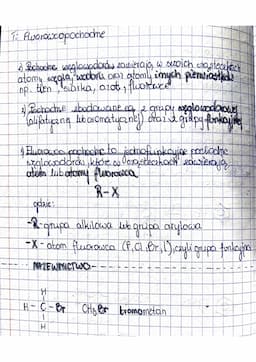 T: Fluorowcopochodne
1) Pochodne węglowodorów zawierają w swoich cząsteczkach
atomy węgla, wodoru oraz atomy innych pierwiastków
np. tlen, siarka, azot, fluorowce
2) Pochodne zbudowane są z grupy węglowodorowej
(alifatycznej lub aromatycznej) oraz z grupy funkcyjnej
Fluorowcopochodne to jednofunkcyjne pochodne
węglowodorów, które w cząsteczkach zawierają
atom lub atomy fluorowca
R-X
gdzie:
-R- grupa alkilowa lub grupa arylowa
-X- atom fluorowca (F, Cl, Br, I), czyli grupa funkcyjna
NAZEWNICTWO
H
H-C-Br CH3Br bromometan
H